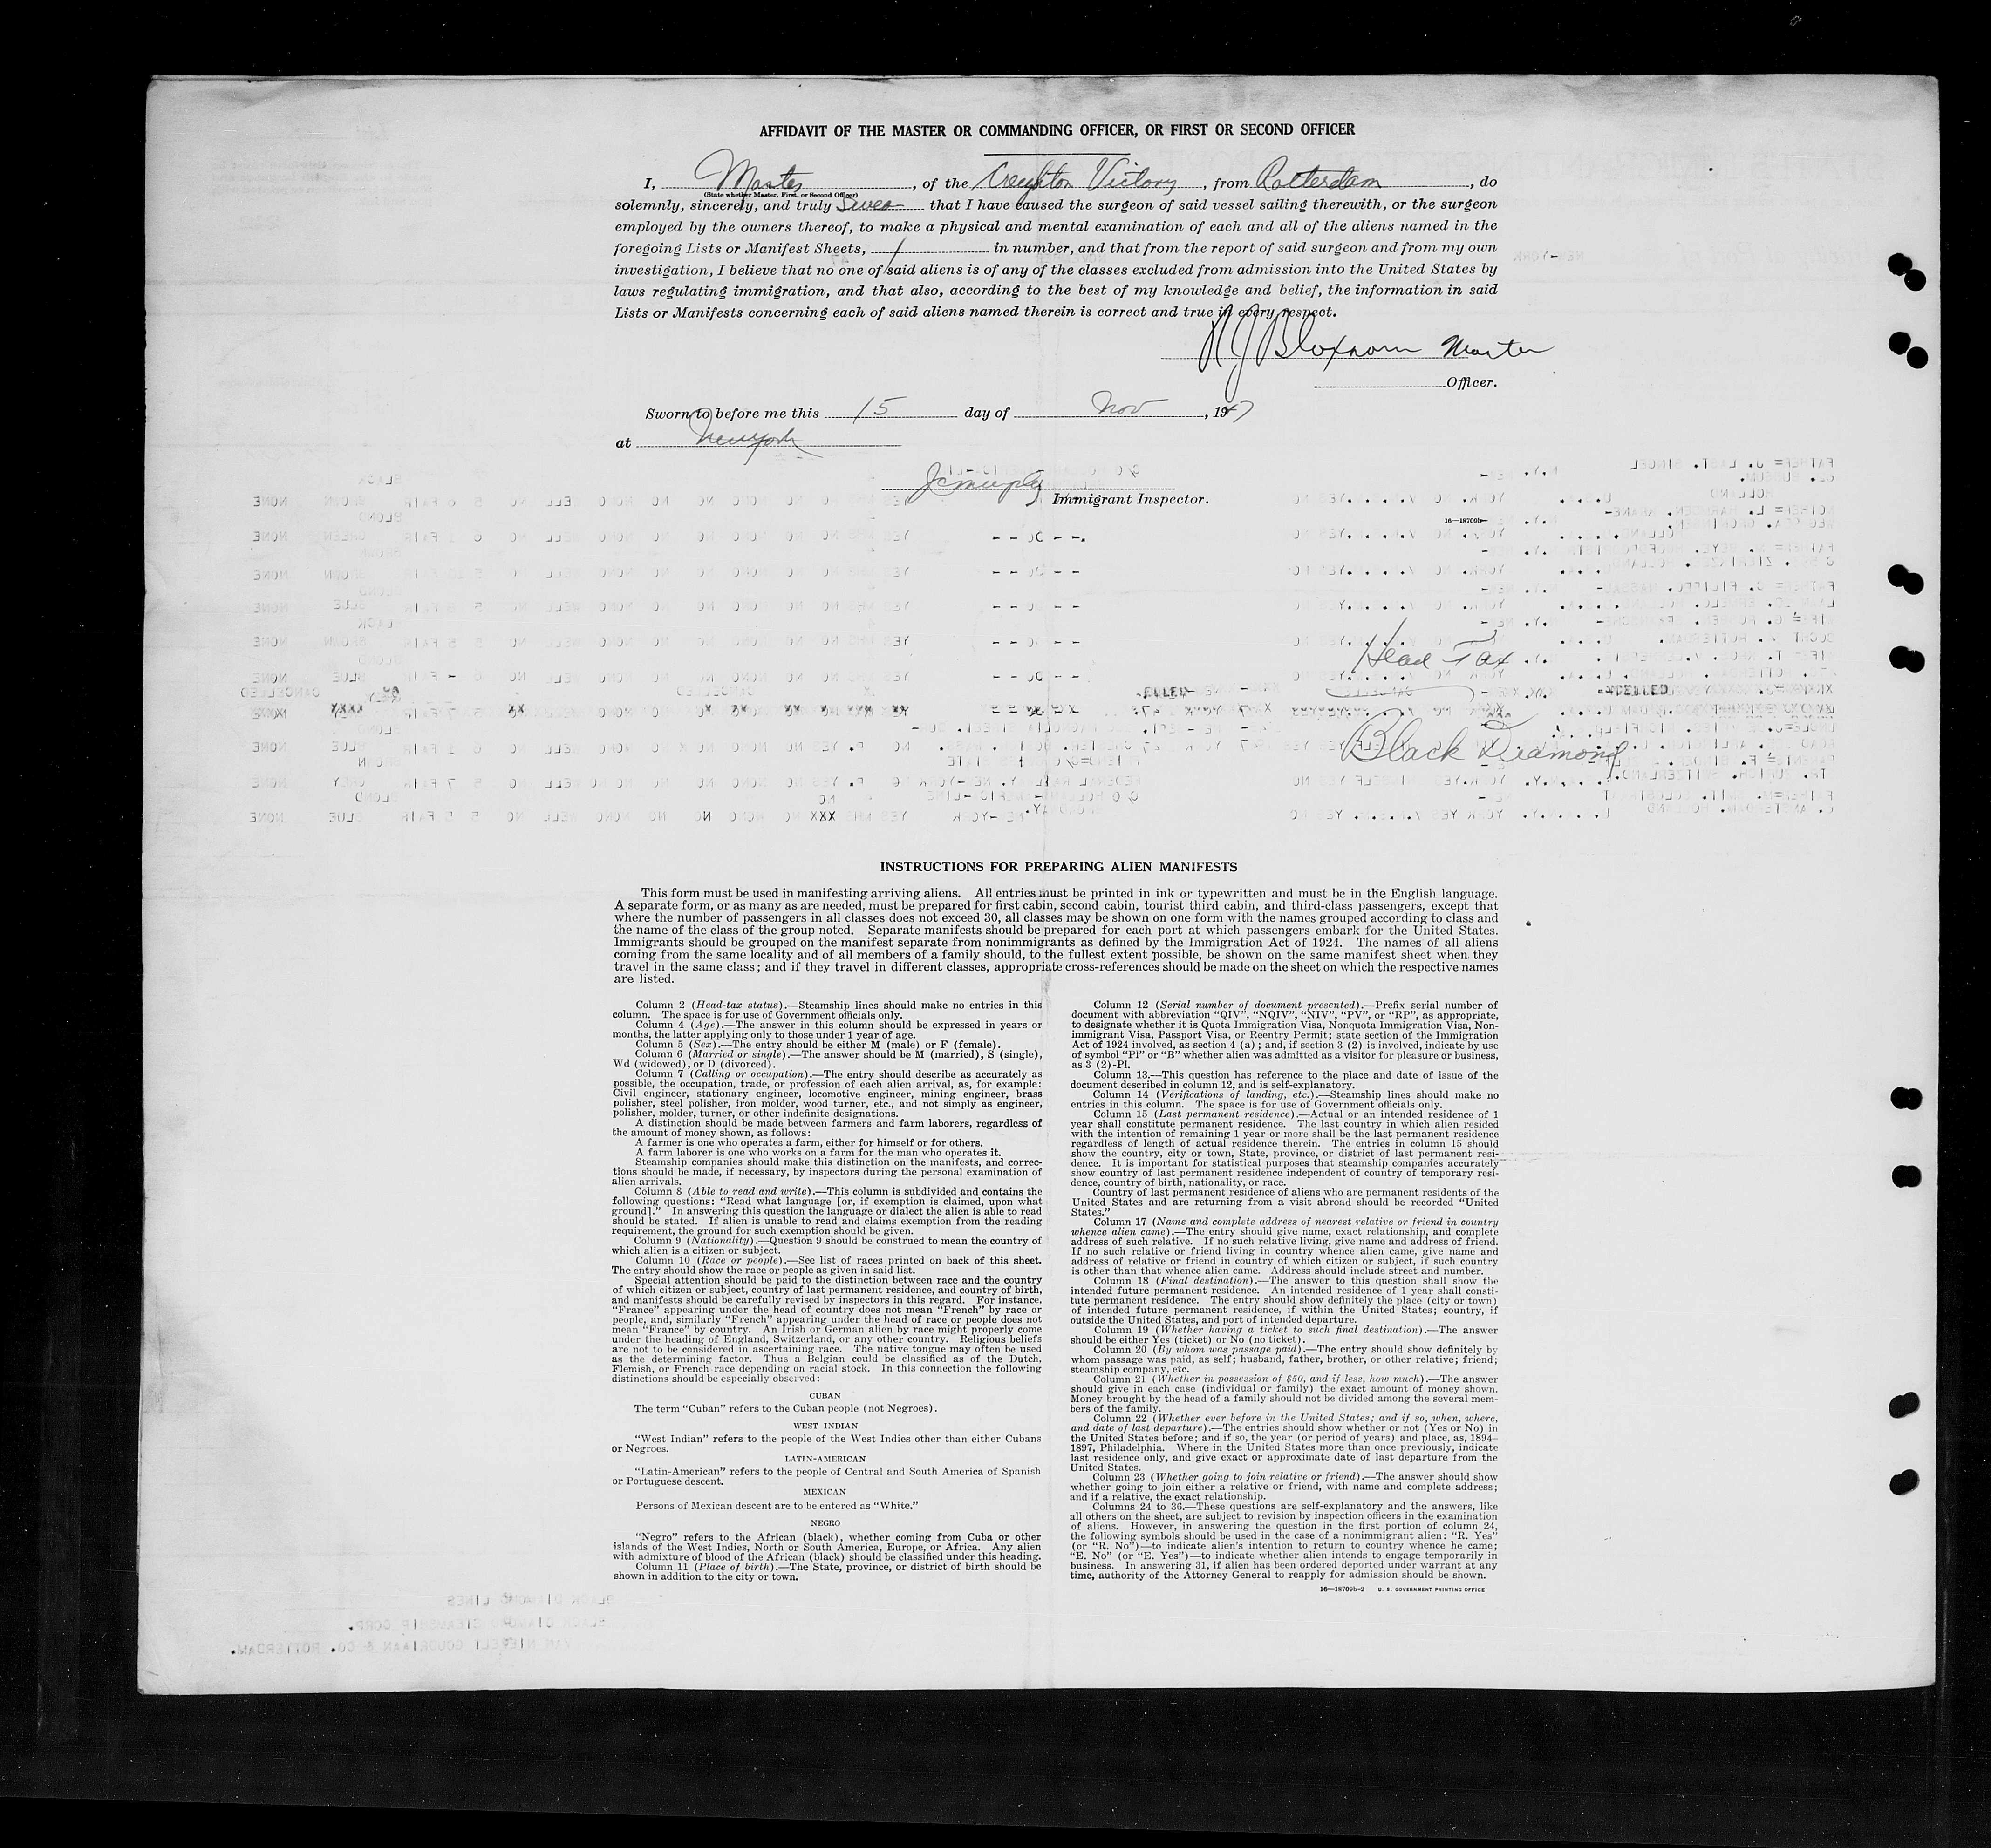 AFFIDAVIT OF THE MASTER OR COMMANDING OFFICER, OR FIRST OR SECOND OFFICER
I, Master, of the Creighton Victory, from Rotterdam, do
(State whether Master, First, or Second Officer)
solemnly, sincerely, and truly swear that I have caused the surgeon of said vessel sailing therewith, or the surgeon
employed by the owners thereof, to make a physical and mental examination of each and all of the aliens named in the
foregoing Lists or Manifest Sheets, 1 in number, and that from the report of said surgeon and from my own
investigation, I believe that no one of said aliens is of any of the classes excluded from admission into the United States by
laws regulating immigration, and that also, according to the best of my knowledge and belief, the information in said
Lists or Manifests concerning each of said aliens named therein is correct and true in every respect.
Bloxsom Master
Officer.
Sworn to before me this 15 day of Nov, 1947
at New York
Immigrant Inspector.
16—18709b
Head Tax
Black Diamond
INSTRUCTIONS FOR PREPARING ALIEN MANIFESTS
This form must be used in manifesting arriving aliens. All entries must be printed in ink or typewritten and must be in the English language.
A separate form, or as many as are needed, must be prepared for first cabin, second cabin, tourist third cabin, and third-class passengers, except that
where the number of passengers in all classes does not exceed 30, all classes may be shown on one form with the names grouped according to class and
the name of the class of the group noted. Separate manifests should be prepared for each port at which passengers embark for the United States.
Immigrants should be grouped on the manifest separate from nonimmigrants as defined by the Immigration Act of 1924. The names of all aliens
coming from the same locality and of all members of a family should, to the fullest extent possible, be shown on the same manifest sheet when they
travel in the same class; and if they travel in different classes, appropriate cross-references should be made on the sheet on which the respective names
are listed.
Column 2 (Head-tax status).—Steamship lines should make no entries in this
column. The space is for use of Government officials only.
Column 4 (Age).—The answer in this column should be expressed in years or
months, the latter applying only to those under 1 year of age.
Column 5 (Sex).—The entry should be either M (male) or F (female).
Column 6 (Married or single).—The answer should be M (married), S (single),
Wd (widowed), or D (divorced).
Column 7 (Calling or occupation).—The entry should describe as accurately as
possible, the occupation, trade, or profession of each alien arrival, as, for example:
Civil engineer, stationary engineer, locomotive engineer, mining engineer, brass
polisher, steel polisher, iron molder, wood turner, etc., and not simply as engineer,
polisher, molder, turner, or other indefinite designations.
A distinction should be made between farmers and farm laborers, regardless of
the amount of money shown, as follows:
A farmer is one who operates a farm, either for himself or for others.
A farm laborer is one who works on a farm for the man who operates it.
Steamship companies should make this distinction on the manifests, and correc-
tions should be made, if necessary, by inspectors during the personal examination of
alien arrivals.
Column 8 (Able to read and write).—This column is subdivided and contains the
following questions: “Read what language [or, if exemption is claimed, upon what
ground].” In answering this question the language or dialect the alien is able to read
should be stated. If alien is unable to read and claims exemption from the reading
requirement, the ground for such exemption should be given.
Column 9 (Nationality).—Question 9 should be construed to mean the country of
which alien is a citizen or subject.
Column 10 (Race or people).—See list of races printed on back of this sheet.
The entry should show the race or people as given in said list.
Special attention should be paid to the distinction between race and the country
of which citizen or subject, country of last permanent residence, and country of birth,
and manifests should be carefully revised by inspectors in this regard. For instance,
“France” appearing under the head of country does not mean “French” by race or
people, and, similarly “French” appearing under the head of race or people does not
mean “France” by country. An Irish or German alien by race might properly come
under the heading of England, Switzerland, or any other country. Religious beliefs
are not to be considered in ascertaining race. The native tongue may often be used
as the determining factor. Thus a Belgian could be classified as of the Dutch,
Flemish, or French race depending on racial stock. In this connection the following
distinctions should be especially observed:
CUBAN
The term “Cuban” refers to the Cuban people (not Negroes).
WEST INDIAN
“West Indian” refers to the people of the West Indies other than either Cubans
or Negroes.
LATIN-AMERICAN
“Latin-American” refers to the people of Central and South America of Spanish
or Portuguese descent.
MEXICAN
Persons of Mexican descent are to be entered as “White.”
NEGRO
“Negro” refers to the African (black), whether coming from Cuba or other
islands of the West Indies, North or South America, Europe, or Africa. Any alien
with admixture of blood of the African (black) should be classified under this heading.
Column 11 (Place of birth).—The State, province, or district of birth should be
shown in addition to the city or town.
Column 12 (Serial number of document presented).—Prefix serial number of
document with abbreviation “QIV”, “NQIV”, “NIV”, “PV”, or “RP”, as appropriate,
to designate whether it is Quota Immigration Visa, Nonquota Immigration Visa, Non-
immigrant Visa, Passport Visa, or Reentry Permit; state section of the Immigration
Act of 1924 involved, as section 4 (a); and, if section 3 (2) is involved, indicate by use
of symbol “Pl” or “B” whether alien was admitted as a visitor for pleasure or business,
as 3 (2)-Pl.
Column 13.—This question has reference to the place and date of issue of the
document described in column 12, and is self-explanatory.
Column 14 (Verifications of landing, etc.).—Steamship lines should make no
entries in this column. The space is for use of Government officials only.
Column 15 (Last permanent residence).—Actual or an intended residence of 1
year shall constitute permanent residence. The last country in which alien resided
with the intention of remaining 1 year or more shall be the last permanent residence
regardless of length of actual residence therein. The entries in column 15 should
show the country, city or town, State, province, or district of last permanent resi-
dence. It is important for statistical purposes that steamship companies accurately
show country of last permanent residence independent of country of temporary resi-
dence, country of birth, nationality, or race.
Country of last permanent residence of aliens who are permanent residents of the
United States and are returning from a visit abroad should be recorded “United
States.”
Column 17 (Name and complete address of nearest relative or friend in country
whence alien came).—The entry should give name, exact relationship, and complete
address of such relative. If no such relative living, give name and address of friend.
If no such relative or friend living in country whence alien came, give name and
address of relative or friend in country of which citizen or subject, if such country
is other than that whence alien came. Address should include street and number.
Column 18 (Final destination).—The answer to this question shall show the
intended future permanent residence. An intended residence of 1 year shall consti-
tute permanent residence. The entry should show definitely the place (city or town)
of intended future permanent residence, if within the United States; country, if
outside the United States, and port of intended departure.
Column 19 (Whether having a ticket to such final destination).—The answer
should be either Yes (ticket) or No (no ticket).
Column 20 (By whom was passage paid).—The entry should show definitely by
whom passage was paid, as self; husband, father, brother, or other relative; friend;
steamship company, etc.
Column 21 (Whether in possession of $50, and if less, how much).—The answer
should give in each case (individual or family) the exact amount of money shown.
Money brought by the head of a family should not be divided among the several mem-
bers of the family.
Column 22 (Whether ever before in the United States; and if so, when, where,
and date of last departure).—The entries should show whether or not (Yes or No) in
the United States before; and if so, the year (or period of years) and place, as, 1894–
1897, Philadelphia. Where in the United States more than once previously, indicate
last residence only, and give exact or approximate date of last departure from the
United States.
Column 23 (Whether going to join relative or friend).—The answer should show
whether going to join either a relative or friend, with name and complete address;
and if a relative, the exact relationship.
Columns 24 to 36.—These questions are self-explanatory and the answers, like
all others on the sheet, are subject to revision by inspection officers in the examination
of aliens. However, in answering the question in the first portion of column 24,
the following symbols should be used in the case of a nonimmigrant alien: “R. Yes”
(or “R. No”)—to indicate alien’s intention to return to country whence he came;
“E. No” (or “E. Yes”)—to indicate whether alien intends to engage temporarily in
business. In answering 31, if alien has been ordered deported under warrant at any
time, authority of the Attorney General to reapply for admission should be shown.
16—18709b-2 U. S. GOVERNMENT PRINTING OFFICE